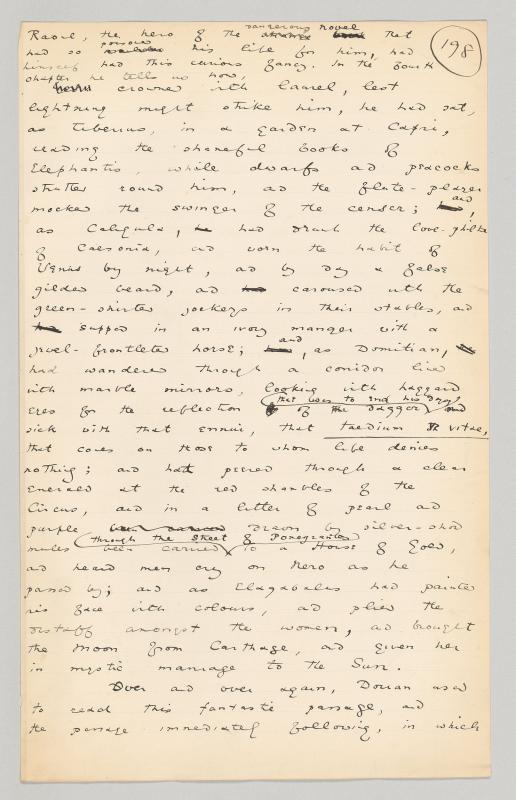 198
dangerous novel
Raoul, the hero of the that
poisoned
had so his life for him, had
himself had this curious fancy. In the fourth
chapter he tells us how,
crowned with laurel, lest
lightning might strike him, he had sat,
as Tiberius, in a garden at Capri,
reading the shameful books of
Elephantis, while dwarfs and peacocks
strutted round him, and the flute-player
mocked the swinger of the censer; and,
as Caligula, he had drunk the love-philtre
of Caesonia, and worn the habit of
Venus by night, and by day a false
gilded beard, and caroused with the
green-shirted jockeys in their stables, and
supped in an ivory manger with a
jewel-frontleted horse; and, as Domitian,
had wandered through a corridor lined
with marble mirrors, looking with haggard
that was to end his days,
eyes for the reflection of the dagger and
sick with that ennui, that taedium vitae,
that comes on those to whom life denies
nothing; and had peered through a clear
Emerald at the red shambles of the
Circus, and in a litter of pearl and
purple drawn by silver-shod
through the Street of Pomegranates
mules been carried to a House of Gold,
and heard men cry on Nero as he
passed by; and as Elagabalus had painted
his face with colours, and plied the
distaff amongst the women, and brought
the Moon from Carthage, and given her
in mystic marriage to the Sun.
Over and over again, Dorian used
to read this fantastic passage, and
the passage immediately following, in which